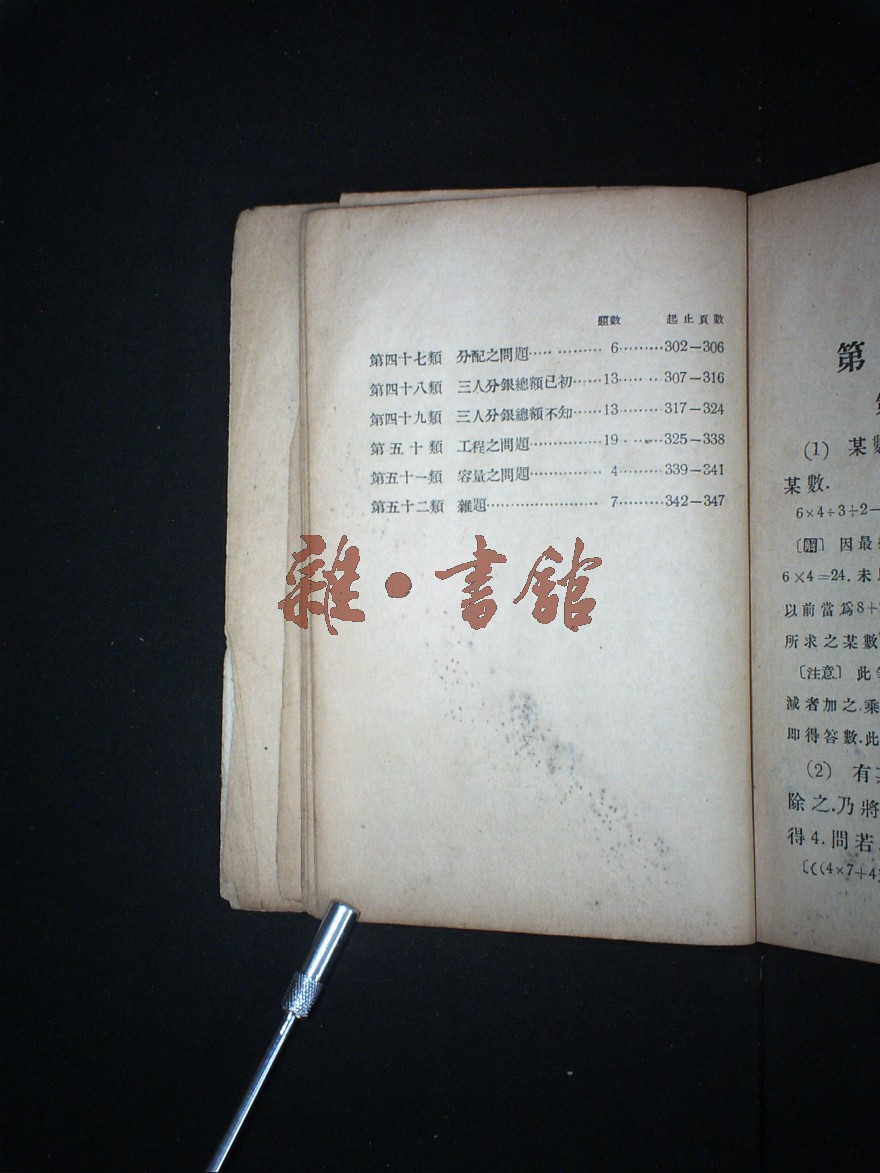 題數 起止頁數
第四十七類 分配之問題…… ………… 6………302—306
第四十八類 三人分銀總額已初……13………307—316
第四十九類 三人分銀總額不知……13………317—324
第五十類 工程之問題……………19………325—338
第五十一類 容量之問題…………… 4………339—341
第五十二類 雜題…………………… 7………342—347
雜·書館
第
(1) 某
某數.
6×4÷3+2—
〔解〕 因最
6×4=24. 未
以前當爲8+
所求之某數
〔注意〕 此
減者加之.乘
即得答數.此
(2) 有
除之.乃將
得4.問若
〔{(4×7+4)